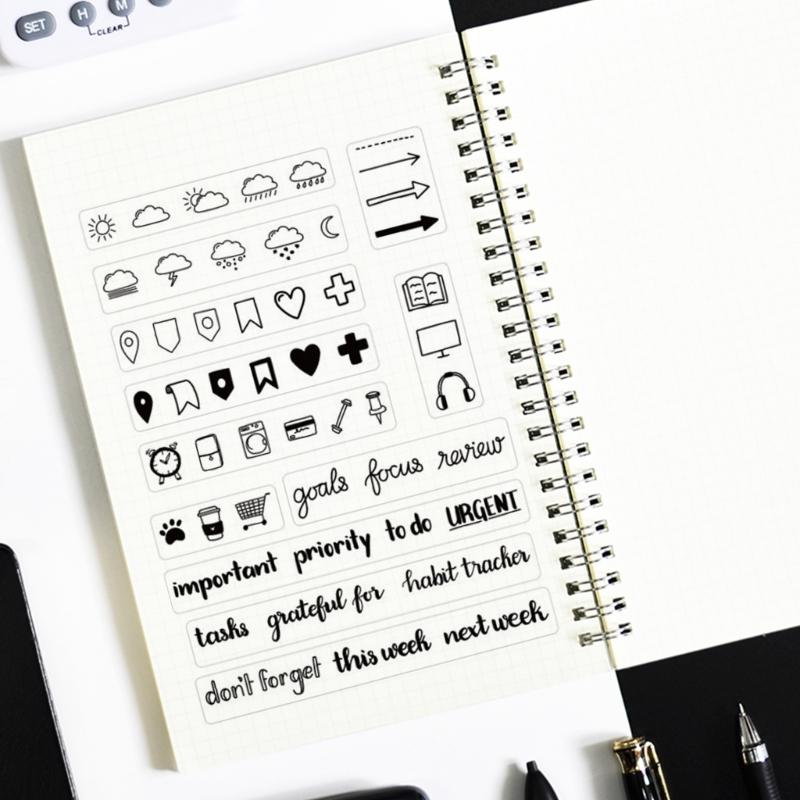 SET H M
CLEAR
goals focus review
important priority to do URGENT
tasks grateful for habit tracker
don't forget this week next week